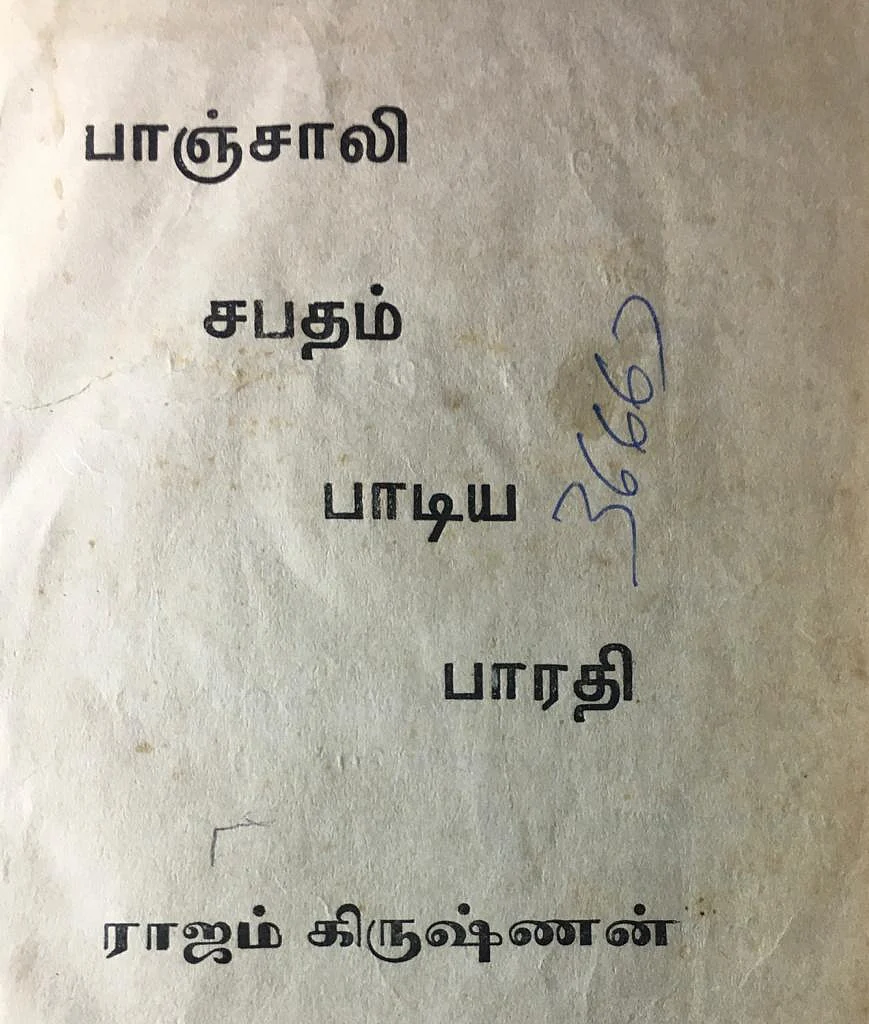 பாஞ்சாலி
சபதம்
பாடிய
பாரதி
ராஜம் கிருஷ்ணன்